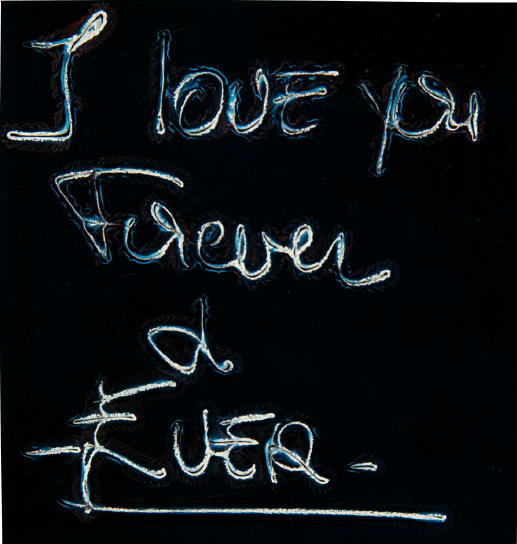 I love you
Forever
&
Ever.